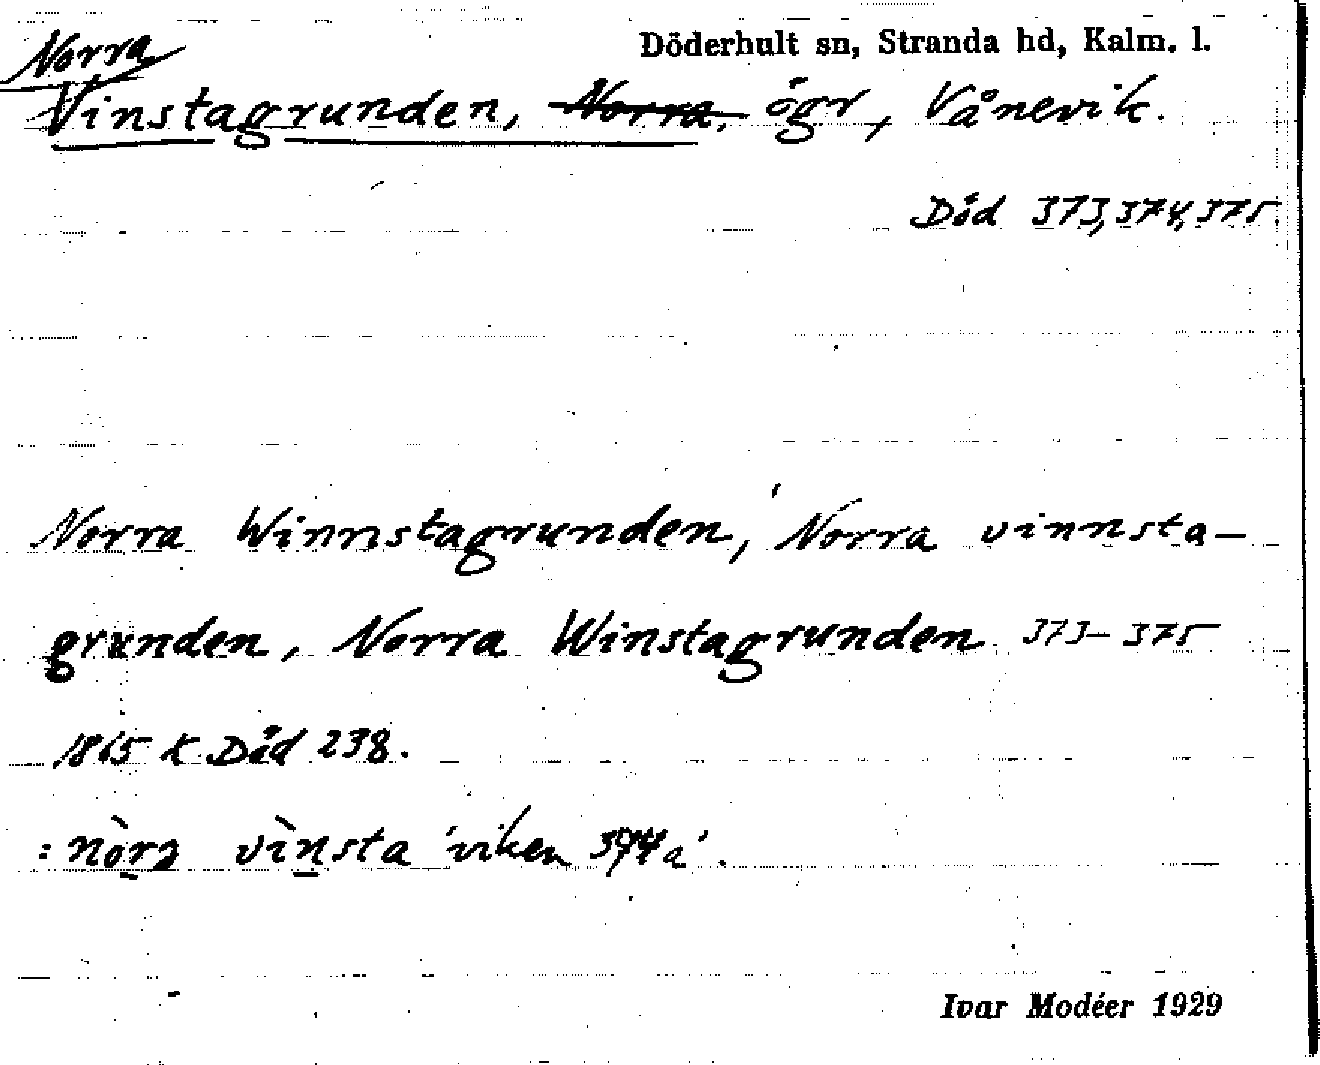 Döderhult sn, Stranda hd, Kalm. l.
Norra
Vinstagrunden, ~~Norra,~~ ögr, Vånevik.
Död 373, 374, 375.
Norra Winnstagrunden, Norra vinnsta-
grunden, Norra Winstagrunden 373–375
1865 K Död 238.
: nòrа vìnsta 'viken 374a'.
Ivar Modéer 1929